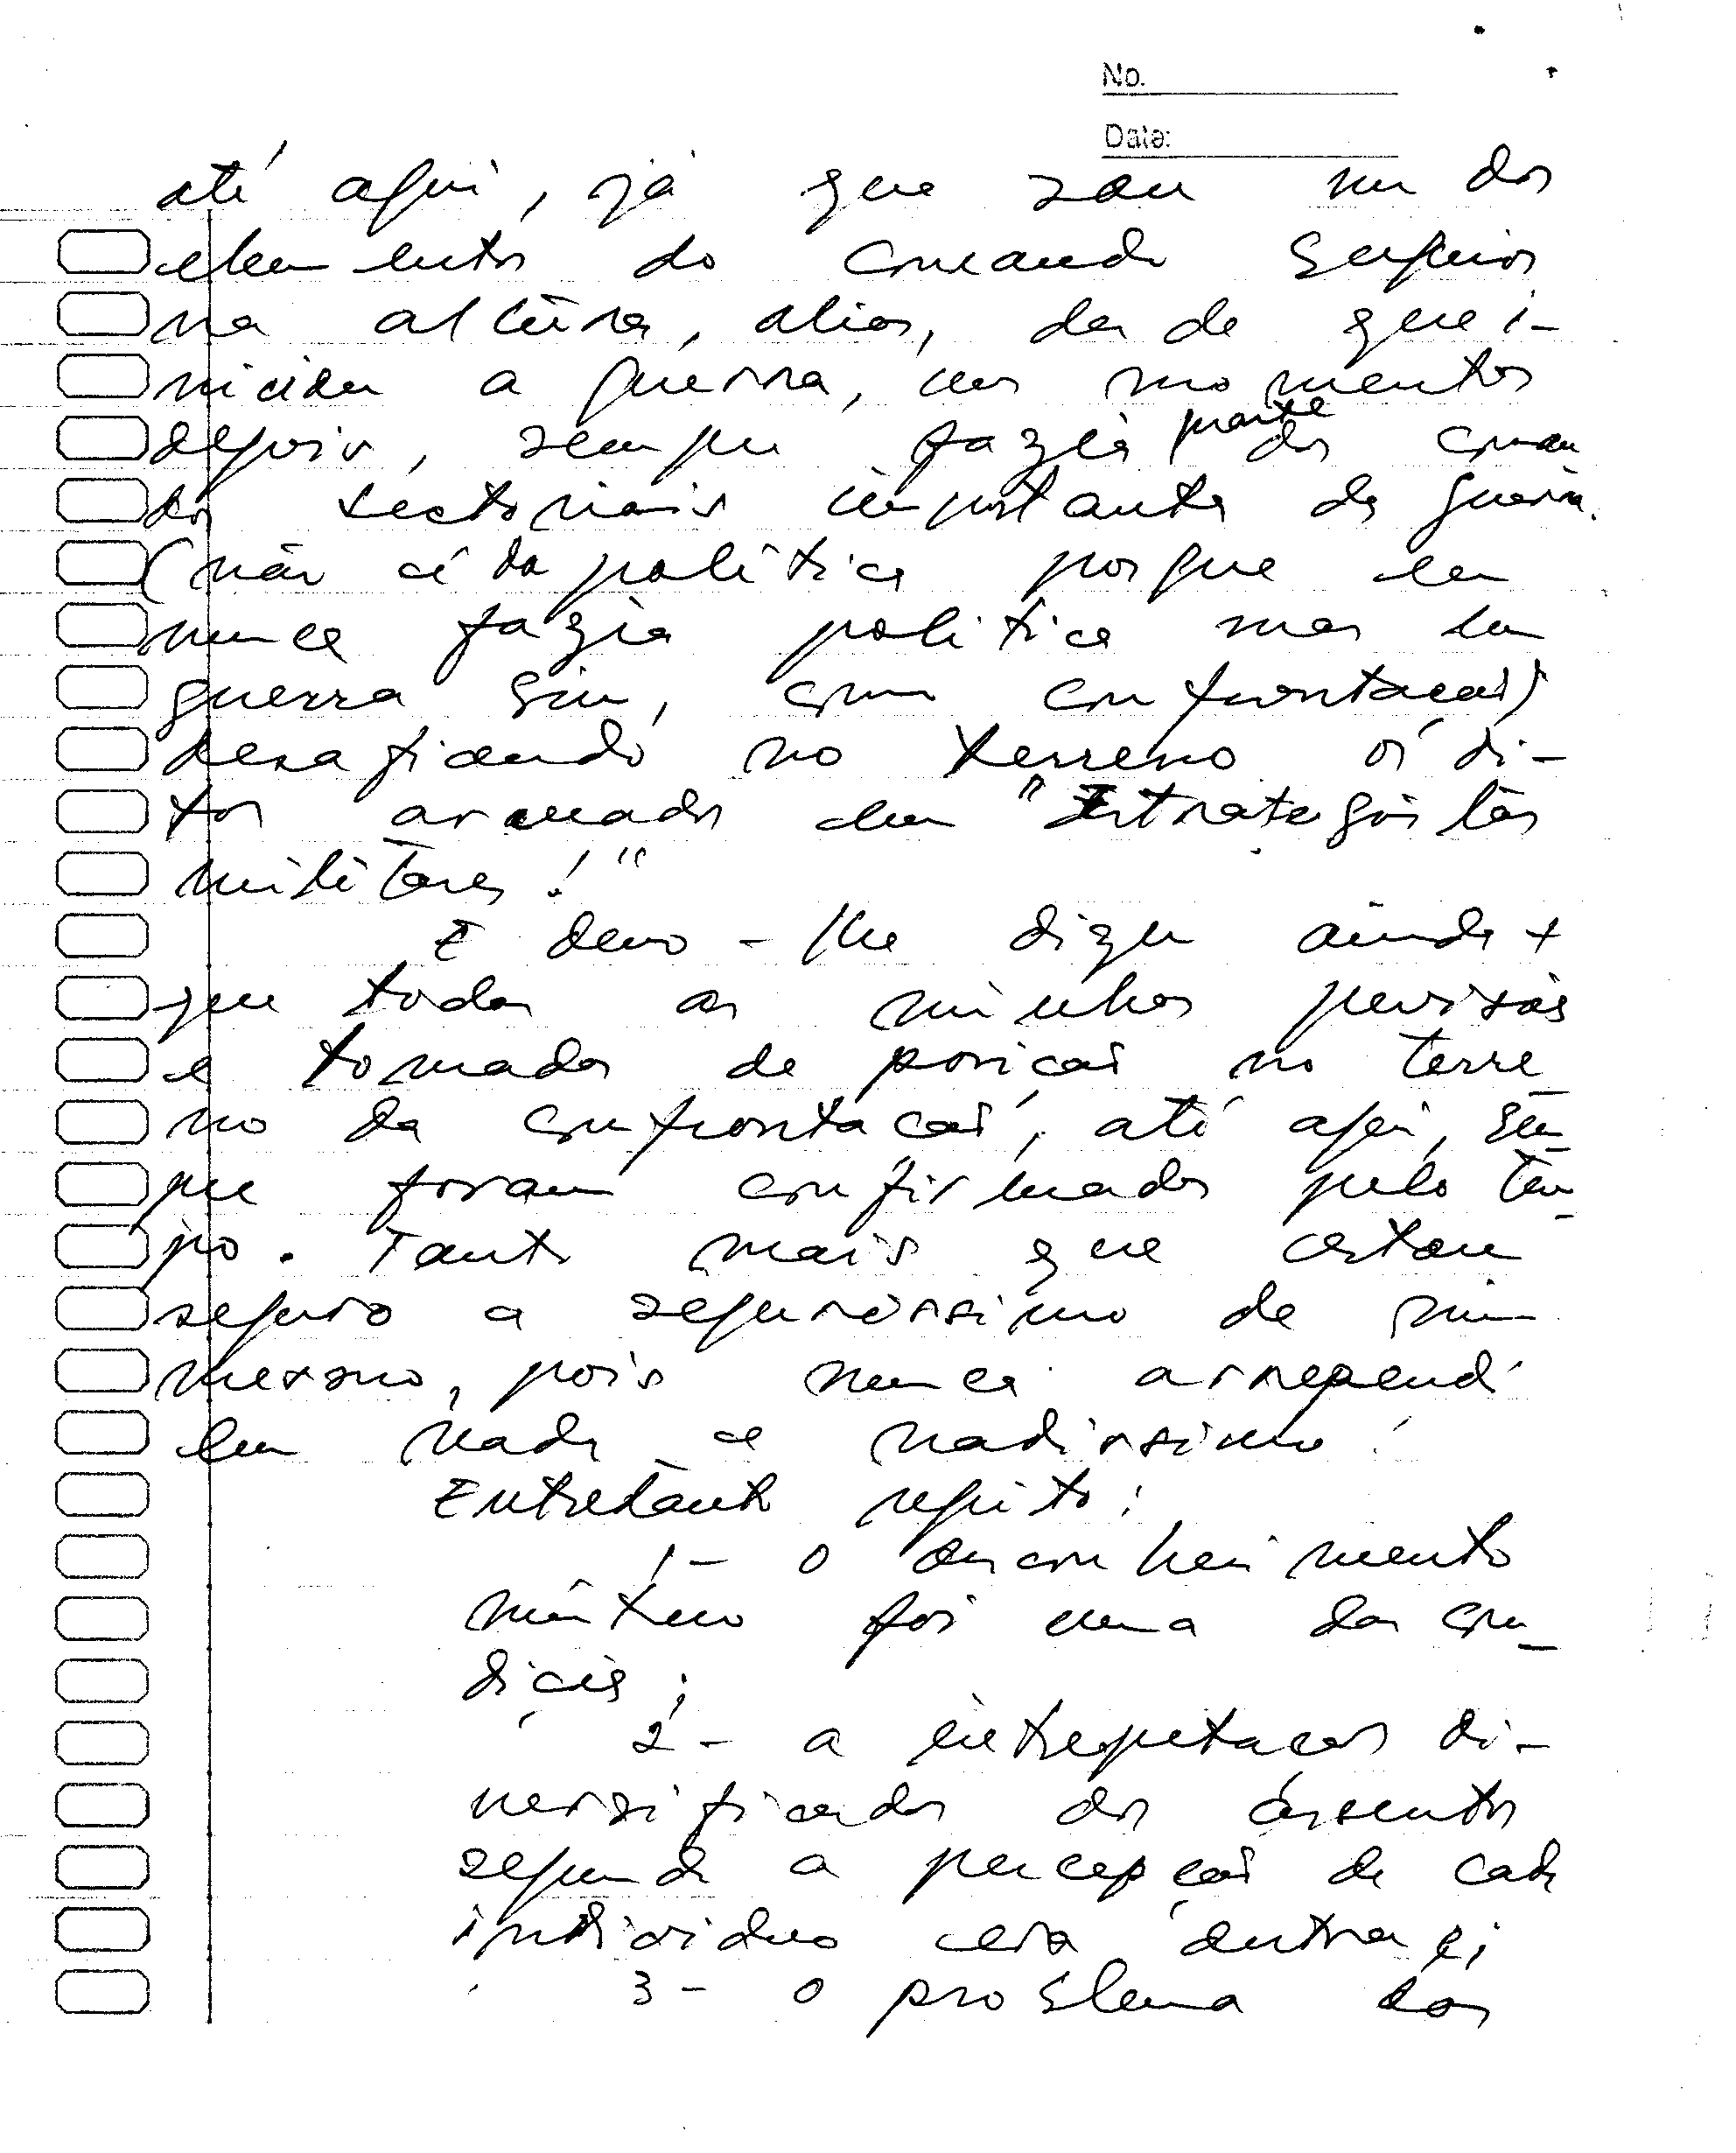 No.
Date:
até aqui, já que sou um dos
elementos do comando Superior
na altura, alias, desde que i-
niciou a guerra, uns momentos
depois, sempre fazia parte dos coman
dos sectoriais importantes da guerra.
(não é da política porque eu
nunca fazia politica mas em
guerra sim, com confrontacoēs)
desafiando no terreno os di-
tos armados em "Estrategistas
militares!"
E devo-lhe dizer ainda +
que todas as minhas previsoēs
e tomadas de posicoēs no terre_
no da confrontacaō, até aqui, sem_
pre foram confirmadas pelo tem_
po. Tanto mais que estou
seguro e segurissimo de mim
mesmo, pois nunca arrependi
em nada e nadissimo!
Entretanto repito:
1- O desconhecimento
mútuo foi uma das con_
dições;
2- a interpretacoes di-
versificadas dos assuntos
segundo a percepcaō de cada
individuo era outra e;
3- O problema dos